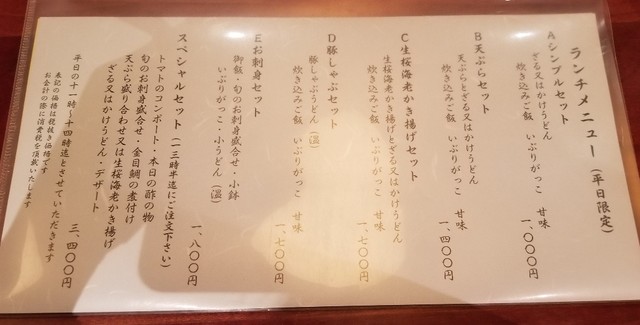 ランチメニュー（平日限定）
Aシンプルセット
ざる又はかけうどん
炊き込みご飯　いぶりがっこ　甘味
一、〇〇〇円
B天ぷらセット
天ぷらとざる又はかけうどん
炊き込みご飯　いぶりがっこ　甘味
一、四〇〇円
C生桜海老かき揚げセット
生桜海老かき揚げとざる又はかけうどん
炊き込みご飯　いぶりがっこ　甘味
一、七〇〇円
D豚しゃぶセット
豚しゃぶうどん（温）
炊き込みご飯　いぶりがっこ　甘味
一、七〇〇円
Eお刺身セット
御飯・旬のお刺身盛合せ・小鉢
いぶりがっこ・小うどん（温）
一、八〇〇円
スペシャルセット（一三時半迄にご注文下さい）
トマトのコンポート・本日の酢の物
旬のお刺身盛合せ・金目鯛の煮付け
天ぷら盛り合わせ又は生桜海老かき揚げ
ざる又はかけうどん・デザート
三、四〇〇円
平日の十一時～十四時迄とさせていただきます
表記の価格は税抜き価格です
お会計の際に消費税を頂戴いたします